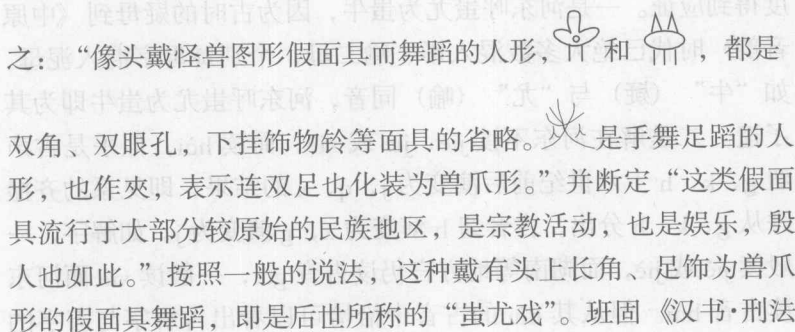 之：“像头戴怪兽图形假面具而舞蹈的人形， 和 ，都是
双角、双眼孔，下挂饰物铃等面具的省略。 是手舞足蹈的人
形，也作夾，表示连双足也化装为兽爪形。”并断定“这类假面
具流行于大部分较原始的民族地区，是宗教活动，也是娱乐，殷
人也如此。”按照一般的说法，这种戴有头上长角、足饰为兽爪
形的假面具舞蹈，即是后世所称的“蚩尤戏”。班固《汉书·刑法